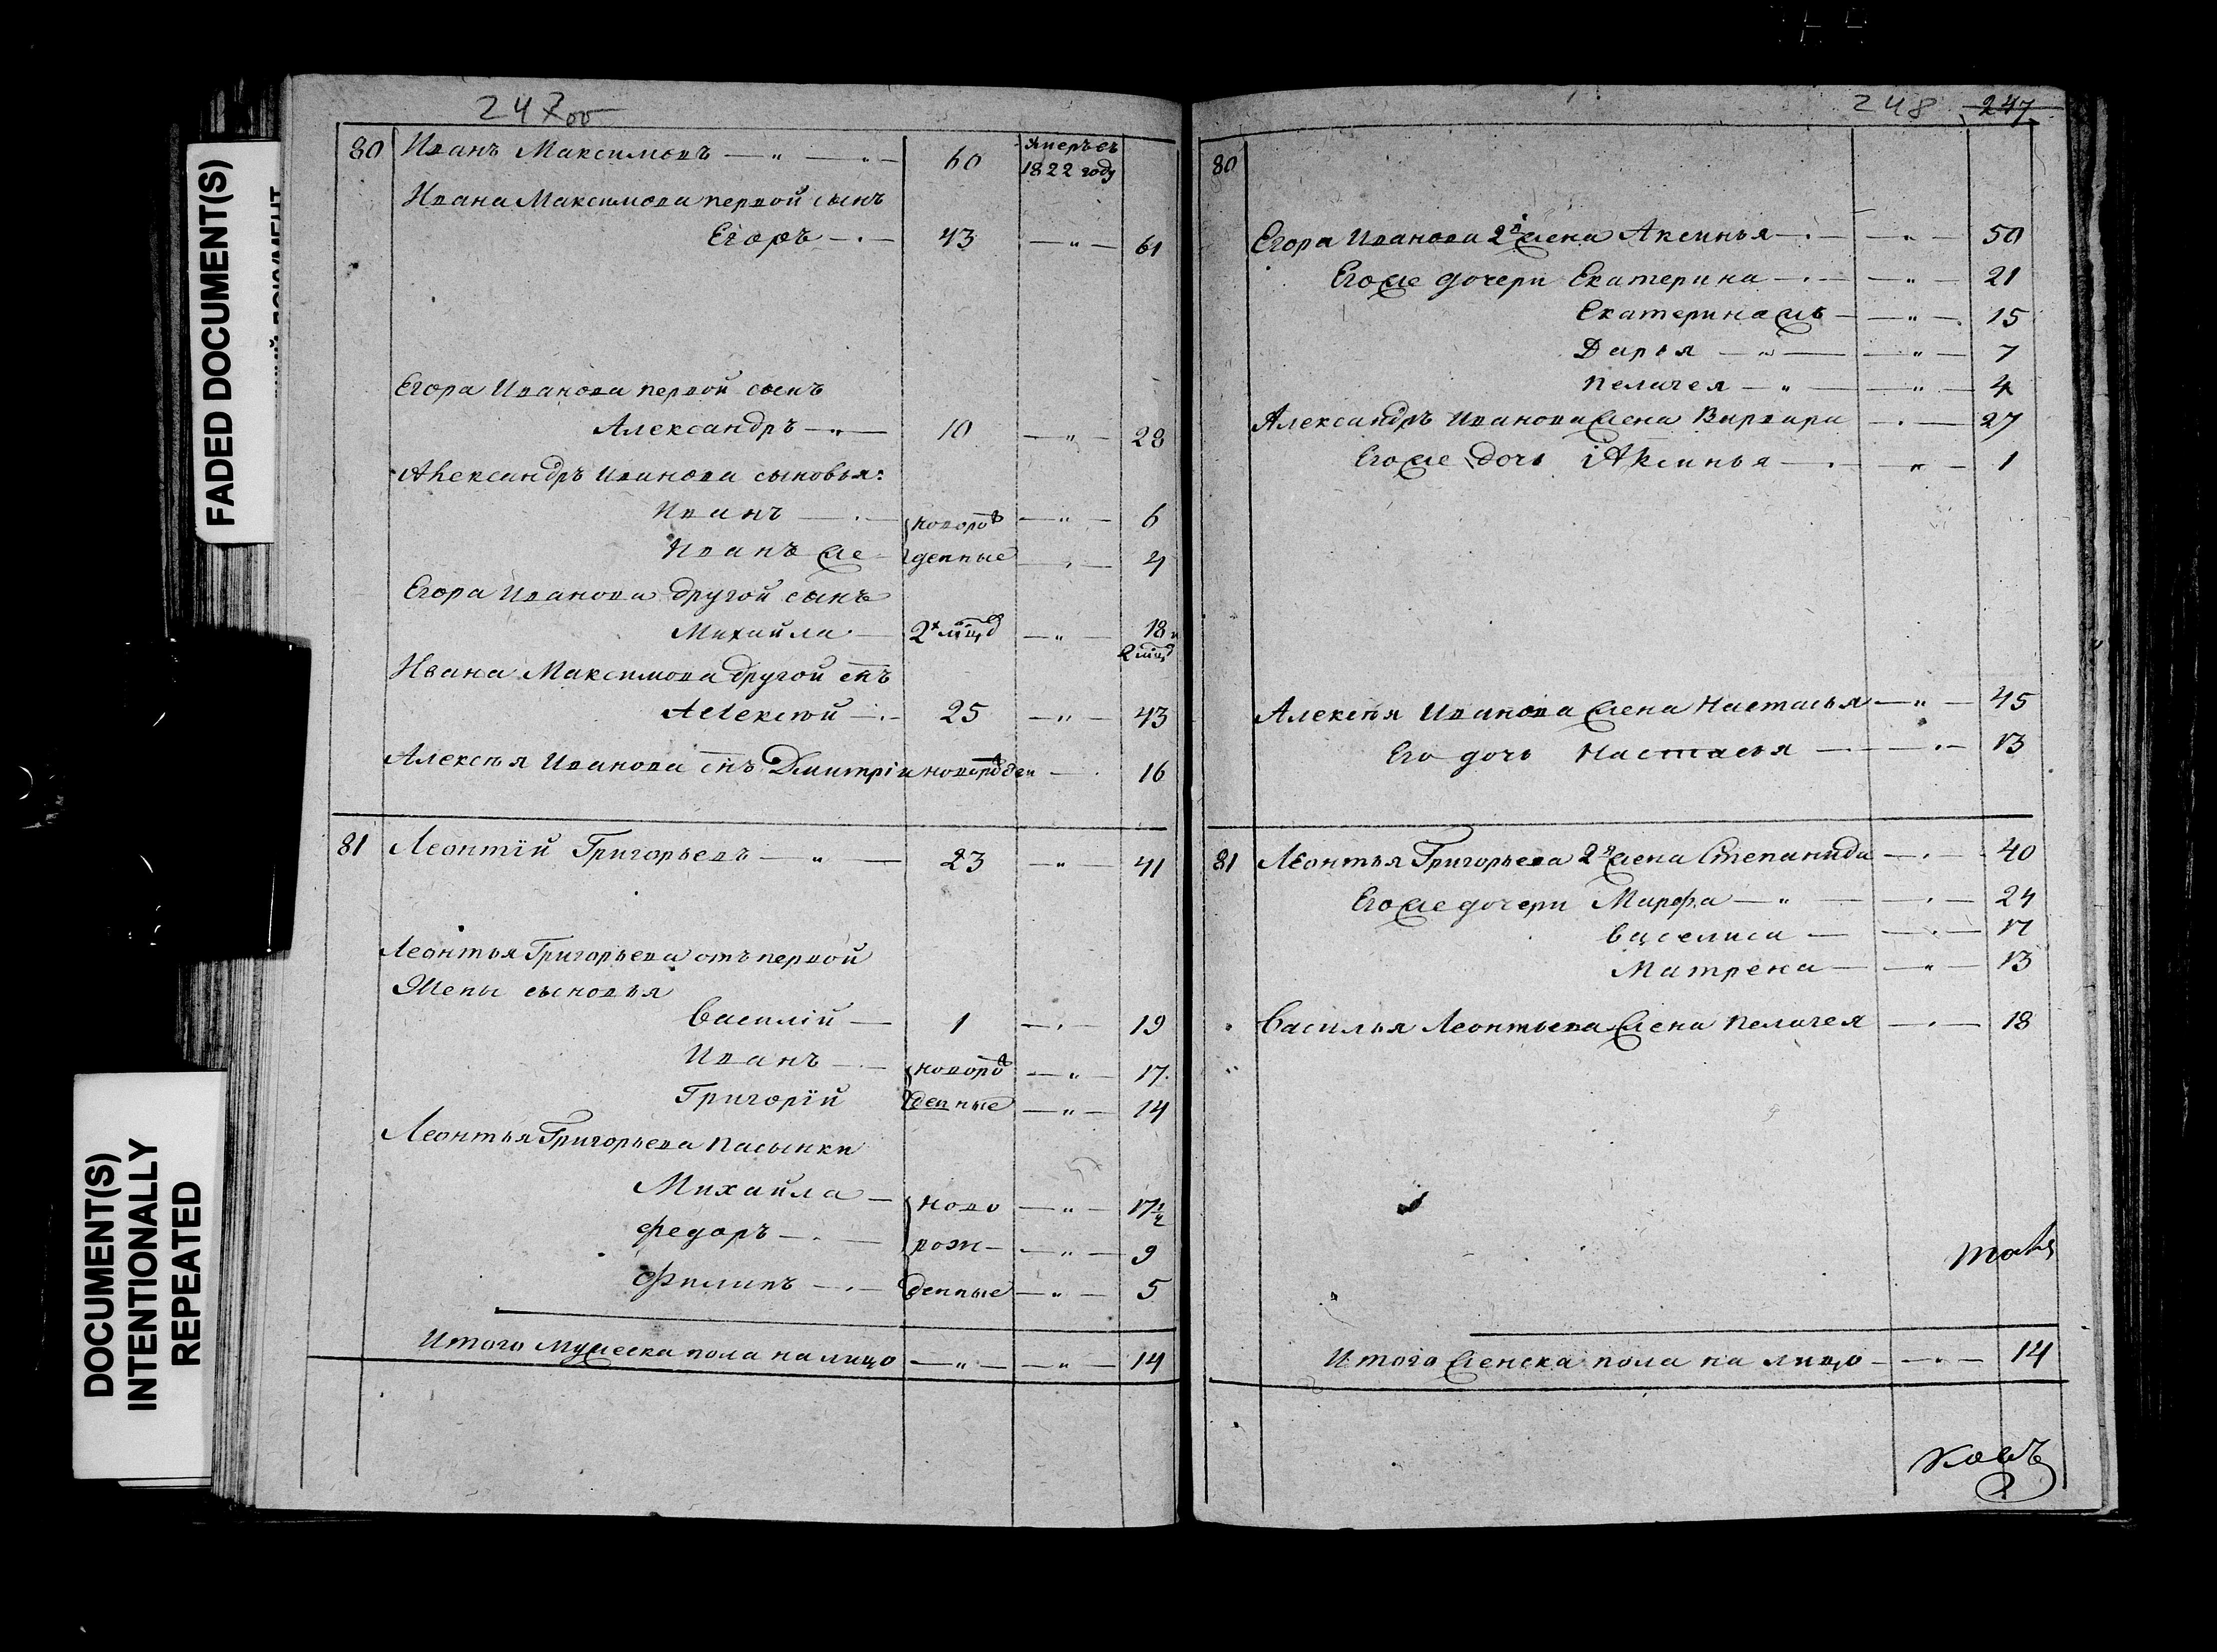 FADED DOCUMENT(S)
DOCUMENT(S)
INTENTIONALLY
REPEATED
247об
80 Иванъ Максимовъ — " — " — 60 умеръ въ
1822 году
Ивана Максимова первой сынъ
Егоръ — 43 — " — 61
Егора Иванова первой сынъ
Александръ — " — 10 — " — 28
Александръ Иванова сыновья:
Иванъ — новорож — " — 6
Иванъ же — денные — " — 4
Егора Иванова другой сынъ
Михайла — 2х мцд — " — 18 и
2 мцд
Ивана Максимова другой снъ
Алексѣй — 25 — " — 43
Алексѣя Иванова снъ Дмитрій новорожден — 16
81 Леонтій Григорьевъ — " — 23 — " — 41
Леонтья Григорьева отъ первой
Жены сыновья
Василій — 1 — " — 19
Иванъ — новорож — " — 17
Григорій денные — " — 14
Леонтья Григорьева пасынки
Михайла — ново — " — 17½
Федоръ — рож — " — 9
Филипъ — денные — " — 5
Итого мужеска пола на лицо — " — " — 14
248 247
80
Егора Иванова 2я жена Аксинья — " — 50
Его же дочери Екатерина — " — 21
Екатерина жъ — " — 15
Дарья — " — " — 7
Пелагея — " — " — 4
Александръ Иванова жена Варвара — 27
Его же дочь Аксинья — " — 1
Алексѣя Иванова жена Настасья — " — 45
Его дочь Настасья — " — 13
81 Леонтья Григорьева 2я жена Степанида — 40
Его же дочери Марфа — " — 24
Василиса — 17
Матрена — " — 13
Василья Леонтьева жена Пелагея — 18
Итого женска пола на лицо — " — 14